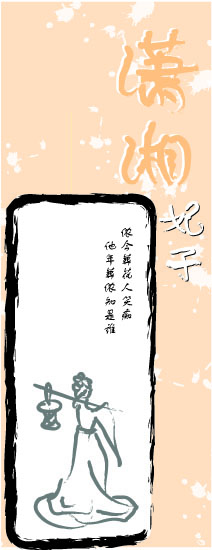 潇湘
妃子
侬今葬花人笑痴
他年葬侬知是谁